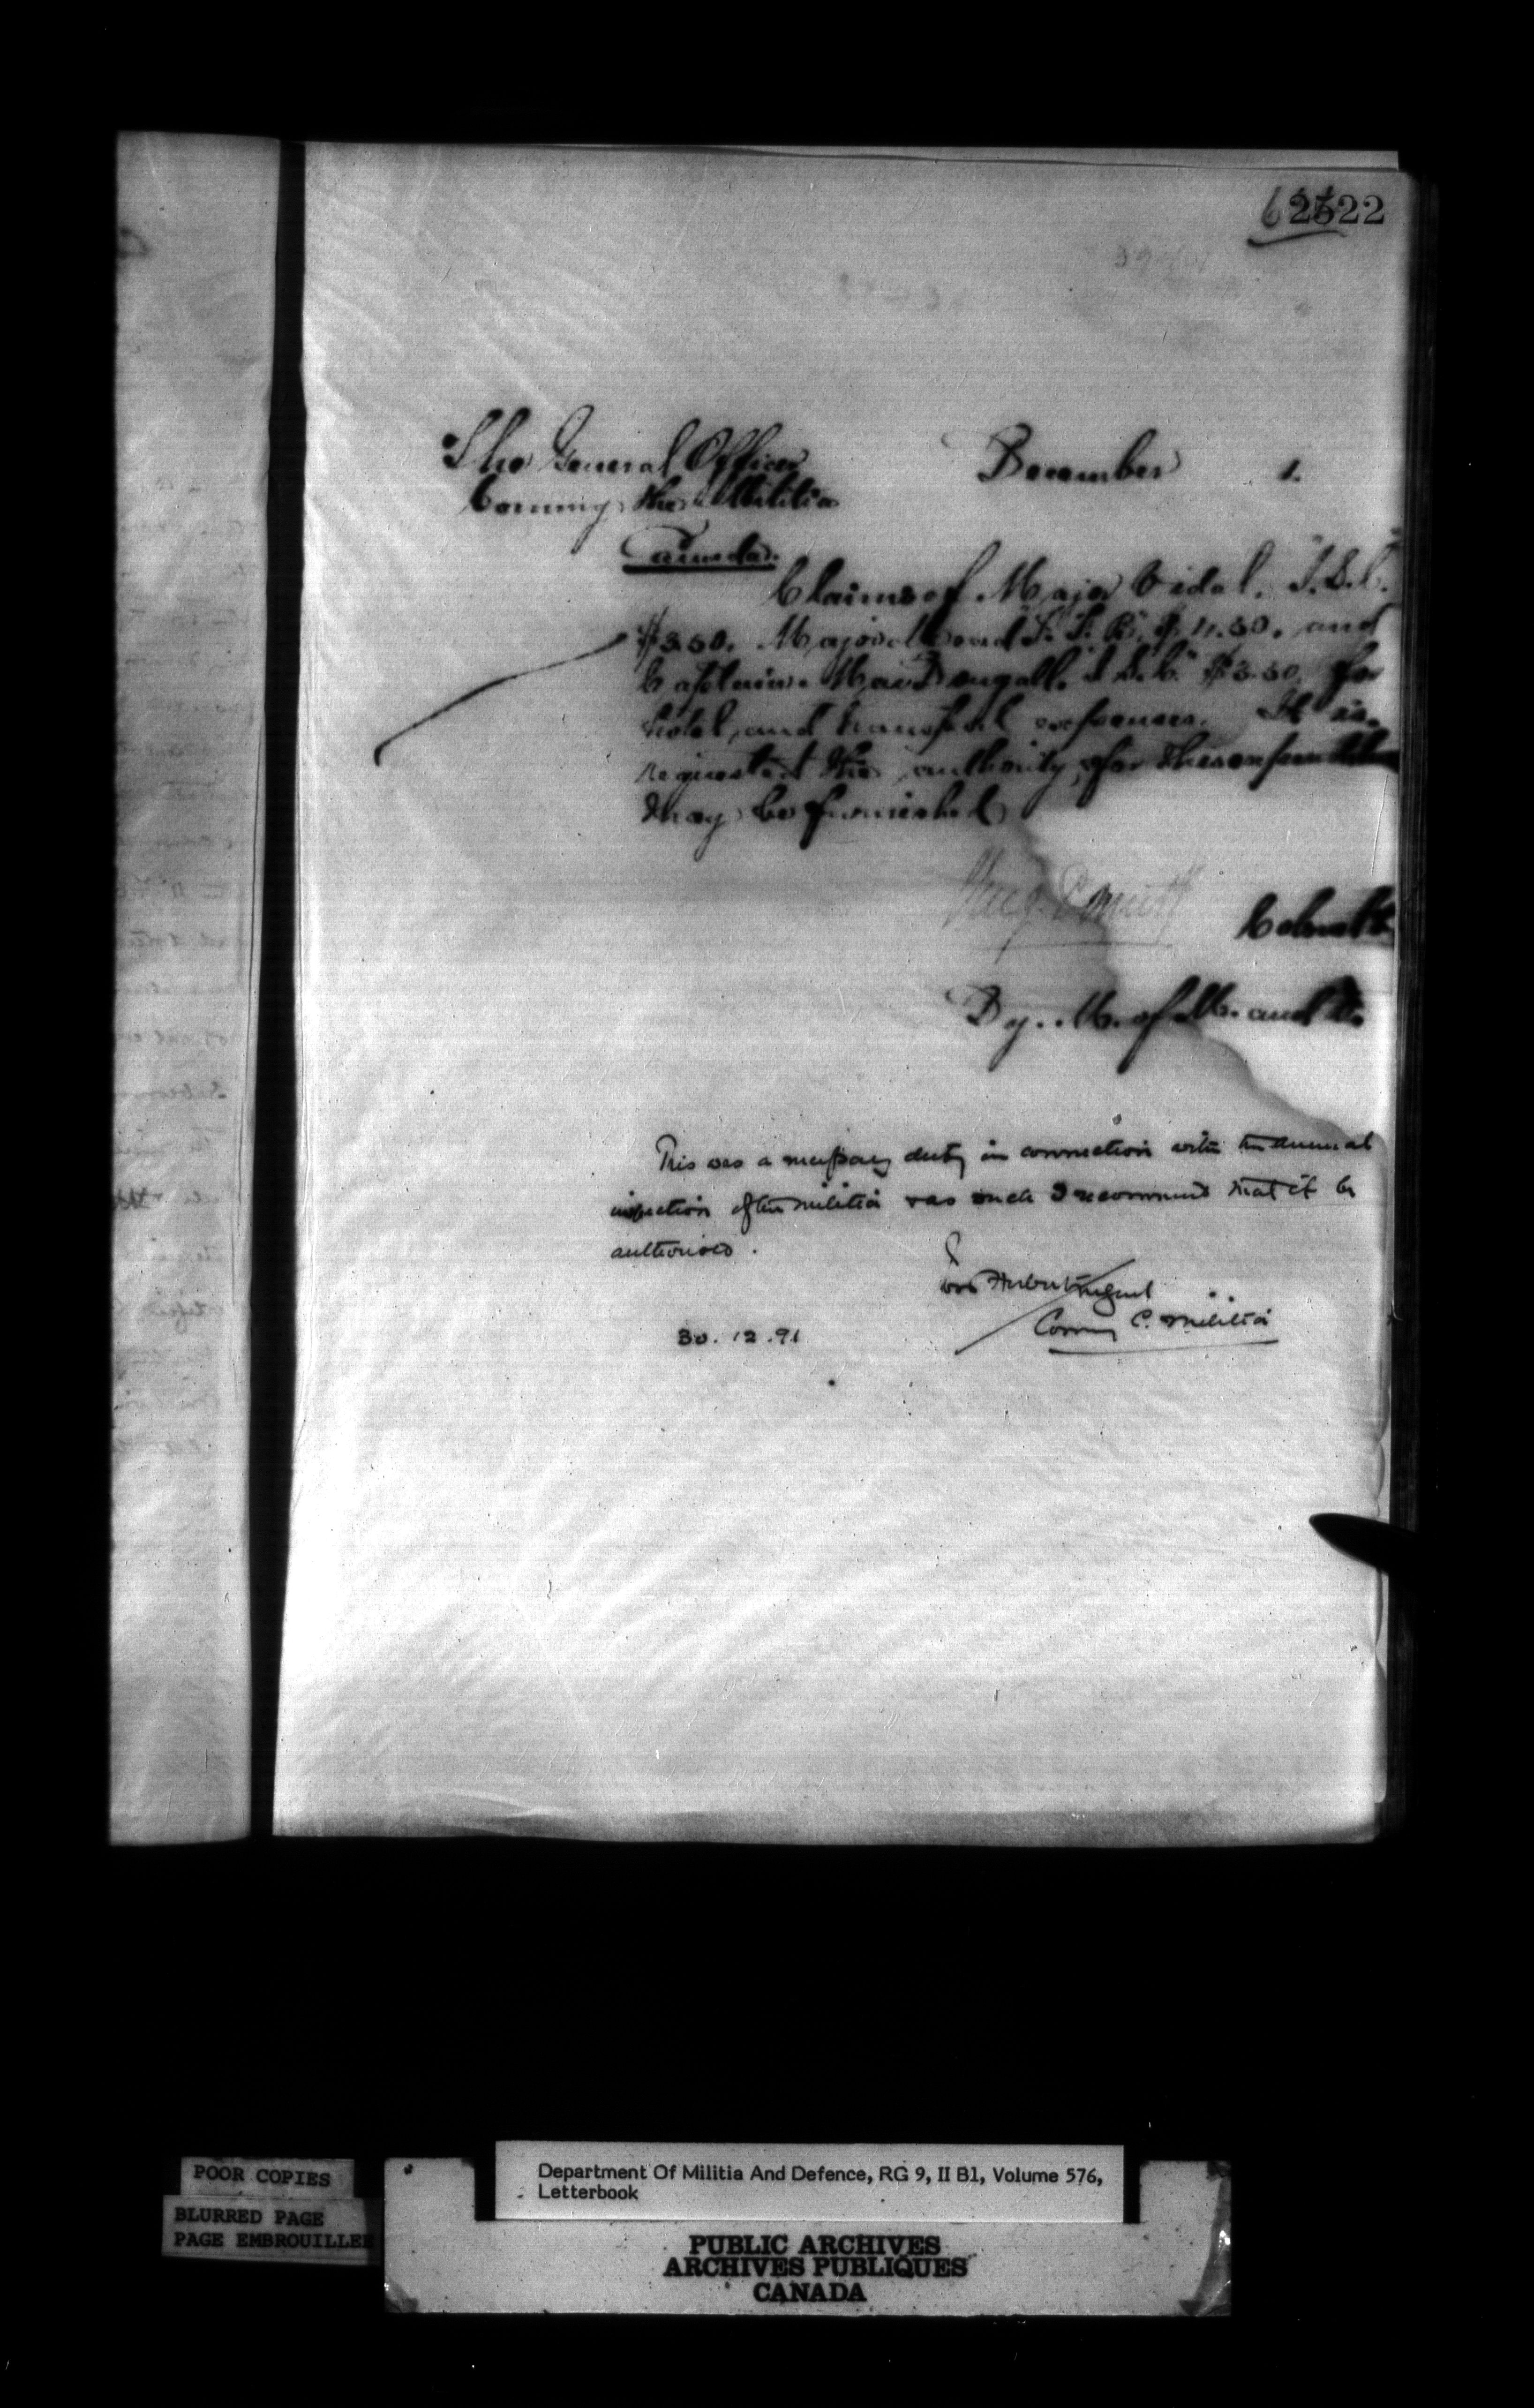 2522
The General Officer
December 1.
Commg the Militia
Canada.
Claims of Major Vidal. "I.S.C."
$3.50. Major "I.S.C." $11.50. and
Captain MacDougall. "I.S.C." $3.50. for
hotel and transport expenses. It is
requested the authority for these
may be furnished
Colonel
Dy. M. of M. and D.
This was a necessary duty in connection with the annual
inspection of the militia & as such I recommend that it be
authorised.
Herbert
Commg C. Militia
30.12.91
POOR COPIES
BLURRED PAGE
PAGE EMBROUILLEE
Department Of Militia And Defence, RG 9, II B1, Volume 576,
Letterbook
PUBLIC ARCHIVES
ARCHIVES PUBLIQUES
CANADA